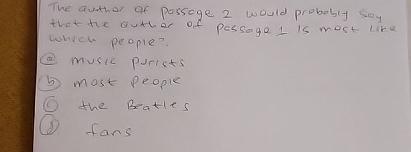 The author of passage 2 would probably say
that the author of passage 1 is most like
which people?
a music purists
b most people
c the Beatles
d fans